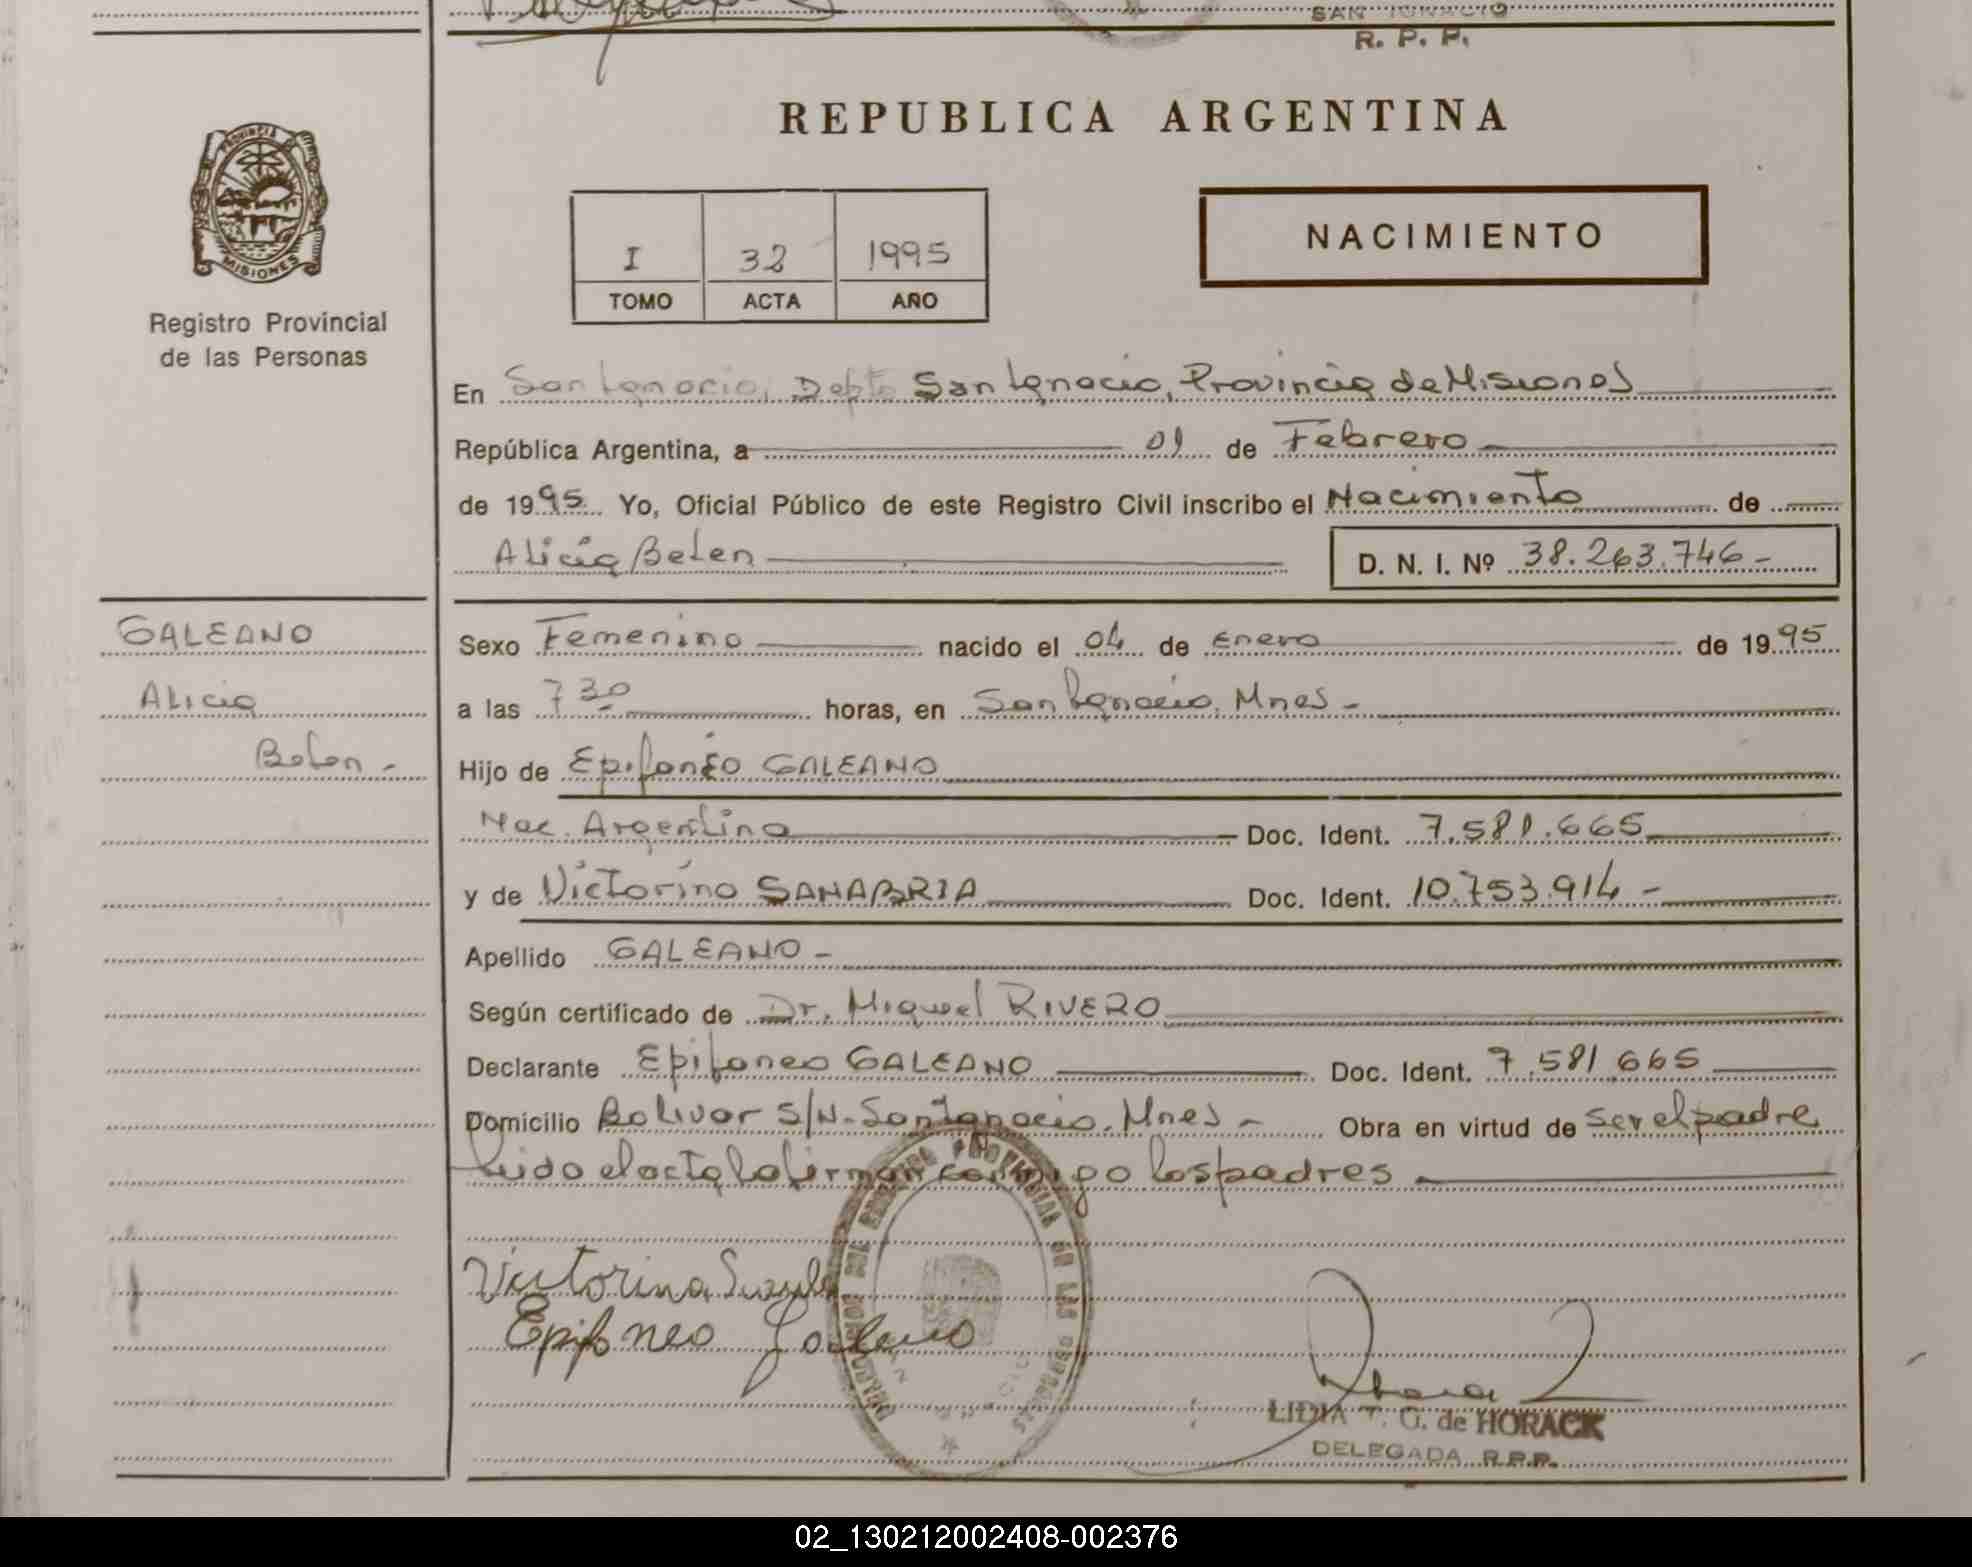 SAN IGNACIO
R. P. P.
REPUBLICA ARGENTINA
PROVINCIA
MISIONES
Registro Provincial
de las Personas
I 32 1995
TOMO ACTA AÑO
NACIMIENTO
En San Ignacio, Depto San Ignacio, Provincia de Misiones
República Argentina, a 01 de Febrero
de 1995 Yo, Oficial Público de este Registro Civil inscribo el Nacimiento de
Alicia Belen D. N. I. Nº 38.263.746-
GALEANO
Alicia
Belen-
Sexo Femenino nacido el 04 de Enero de 1995
a las 7 30 horas, en San Ignacio, Mnes-
Hijo de Epifaneo GALEANO
Nac. Argentina Doc. Ident. 7.581.665
y de Victorina SANABRIA Doc. Ident. 10.753.914-
Apellido GALEANO-
Según certificado de Dr. Miguel RIVERO
Declarante Epifaneo GALEANO Doc. Ident. 7.581.665
Domicilio Bolivar S/N-San Ignacio, Mnes- Obra en virtud de ser el padre
leido el acta la firman conmigo los padres
Victorina
Epifaneo Galeano
LIDIA T. G. de HORACK
DELEGADA R.P.P.
02_130212002408-002376